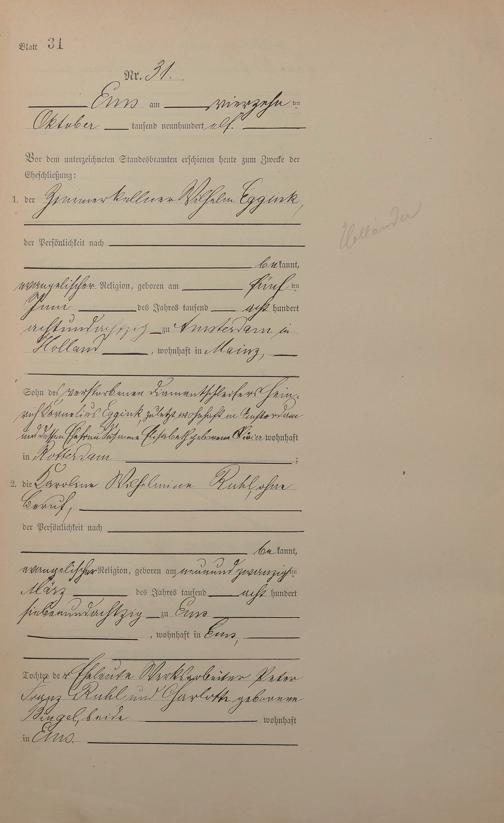 Blatt 31
Nr. 31.
Ems am vierzehn ten
Oktober tausend neunhundert elf.
Vor dem unterzeichneten Standesbeamten erschienen heute zum Zwecke der
Eheschließung:
1. der Zimmerkellner Wilhelm Eggink,
Holländer
der Persönlichkeit nach
bekannt,
evangelischer Religion, geboren am fünf ten
Juni des Jahres tausend acht hundert
achtund zu Amsterdam in
Holland, wohnhaft in Mainz,
Sohn des verstorbenen Diamantschleifers Hein-
rich Kornelius Eggink, zuletzt wohnhaft in Amsterdam
und dessen Ehefrau Susanne Elisabeth geborene wohnhaft
in Rotterdam ;
2. die Karoline Wilhelmine Ruhl, ohne
Beruf,
der Persönlichkeit nach
bekannt,
evangelischer Religion, geboren am neunundzwanzigsten
März des Jahres tausend acht hundert
siebenundachtzig zu Ems
, wohnhaft in Ems,
Tochter der Eheleute Werkarbeiter Peter
Franz Ruhl und Charlotte geborene
Bingel, beide wohnhaft
in Ems.